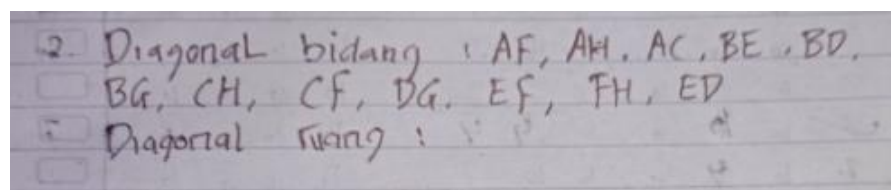 2. Diagonal bidang : AF, AH, AC, BE, BD.
BG, CH, CF, DG, EF, FH, ED
Diagonal ruang :